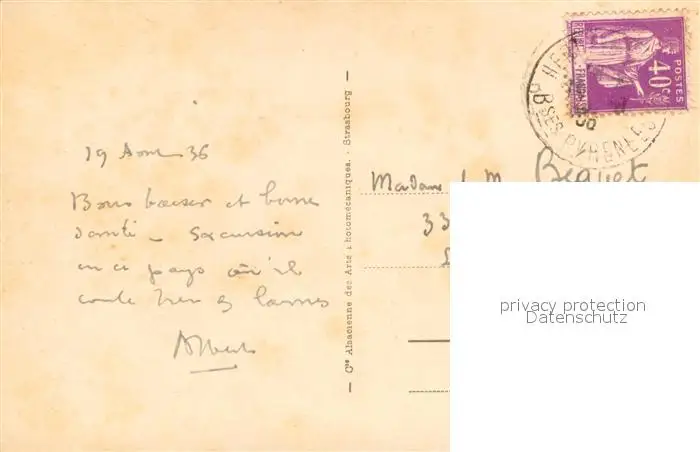 19 Aout 36
Bons baiser et bonne
santé - Excursion
en ce pays où il
coule bien de larmes
Albert
Cie Alsacienne des Arts Photomécaniques. - Strasbourg
40c
POSTES
HEN
Bses PYRENEES
36
Madame J. M. Beguet
33
privacy protection
Datenschutz